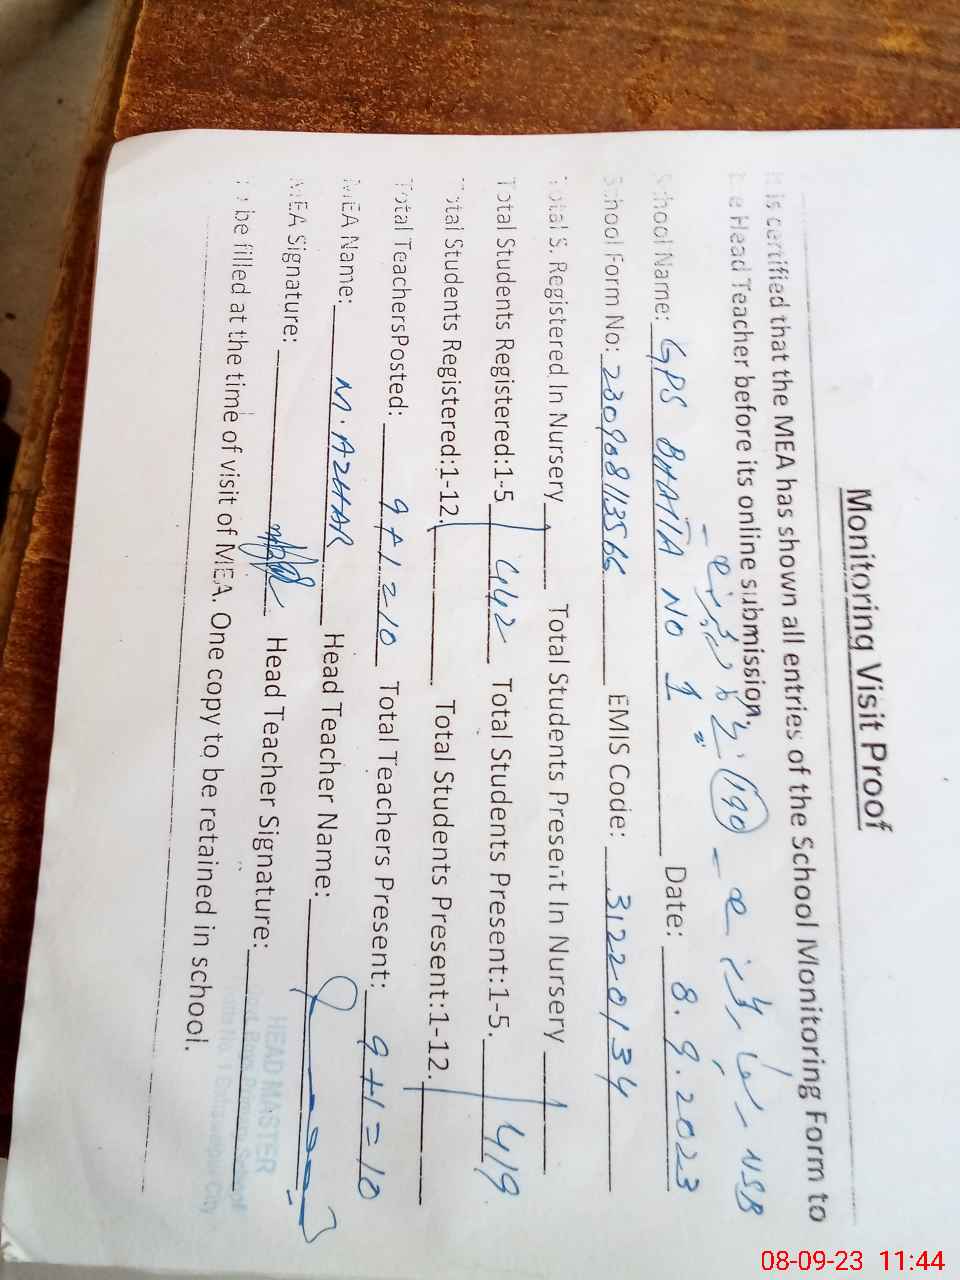 Monitoring Visit Proof
is certified that the MEA has shown all entries of the School Monitoring Form to
Head Teacher before its online submission.
190
NSB
School Name: GPS BHATTA NO 1 Date: 8.9.2023
School Form No: 230908113566 EMIS Code: 31220134
Total S. Registered In Nursery Total Students Present In Nursery
Total Students Registered:1-5 442 Total Students Present:1-5. 419
Total Students Registered:1-12. Total Students Present:1-12.
Total TeachersPosted: 9+1=10 Total Teachers Present: 9+1=10
MEA Name: M.AZHAR Head Teacher Name:
MEA Signature: Head Teacher Signature:
be filled at the time of visit of MEA. One copy to be retained in school.
HEAD MASTER
08-09-23 11:44